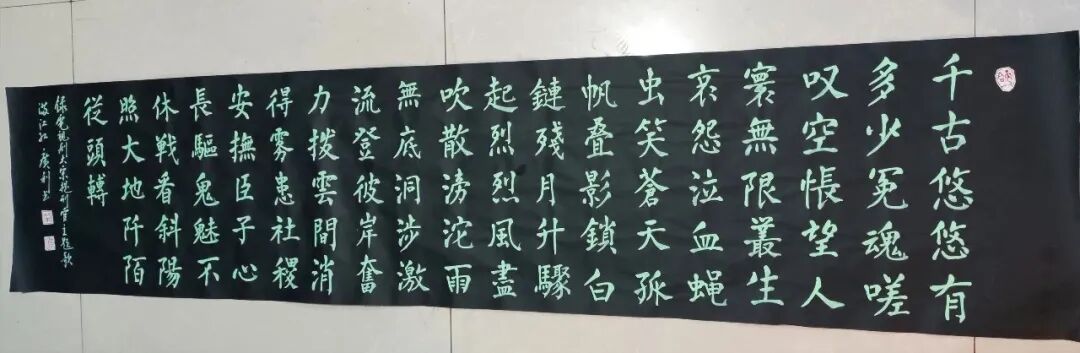 千古悠悠有
多少冤魂嗟
叹空悵望人
寰無限叢生
哀怨泣血蝇
虫笑蒼天孤
帆叠影鎖白
鏈殘月升驟
起烈烈風盡
吹散滂沱雨
無底洞涉激
流登彼岸奮
力撥雲間消
得雾患社稷
安撫臣子心
長驅鬼魅不
休戦看斜陽
照大地阡陌
従頭轉
大宋提刑官主題歌